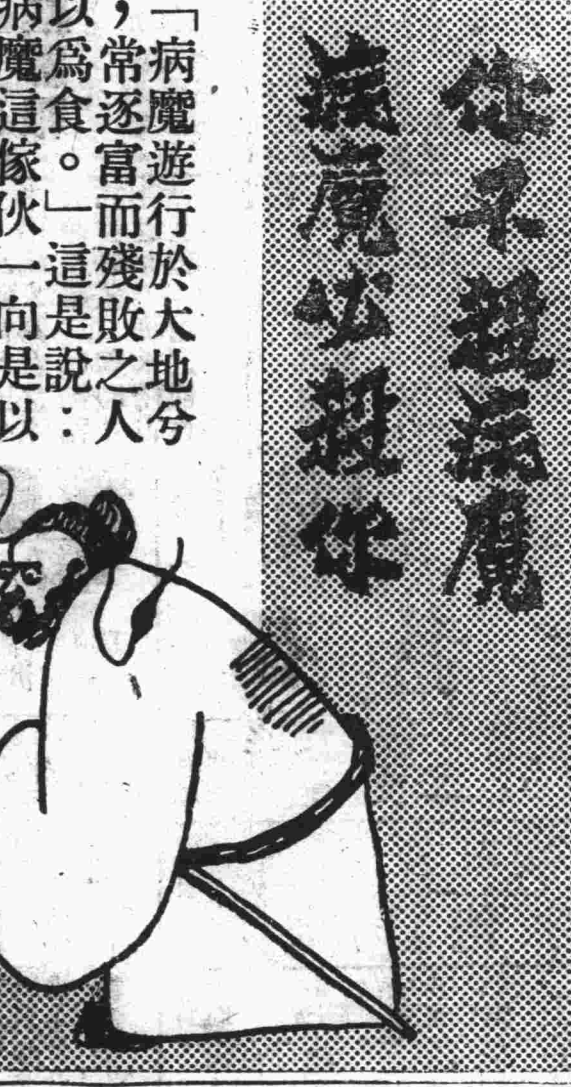 你不病魔
病魔必你
「病魔遊行於大地兮
,常逐富而殘敗之人
以爲食。」這是說:
病魔這傢伙一向是以